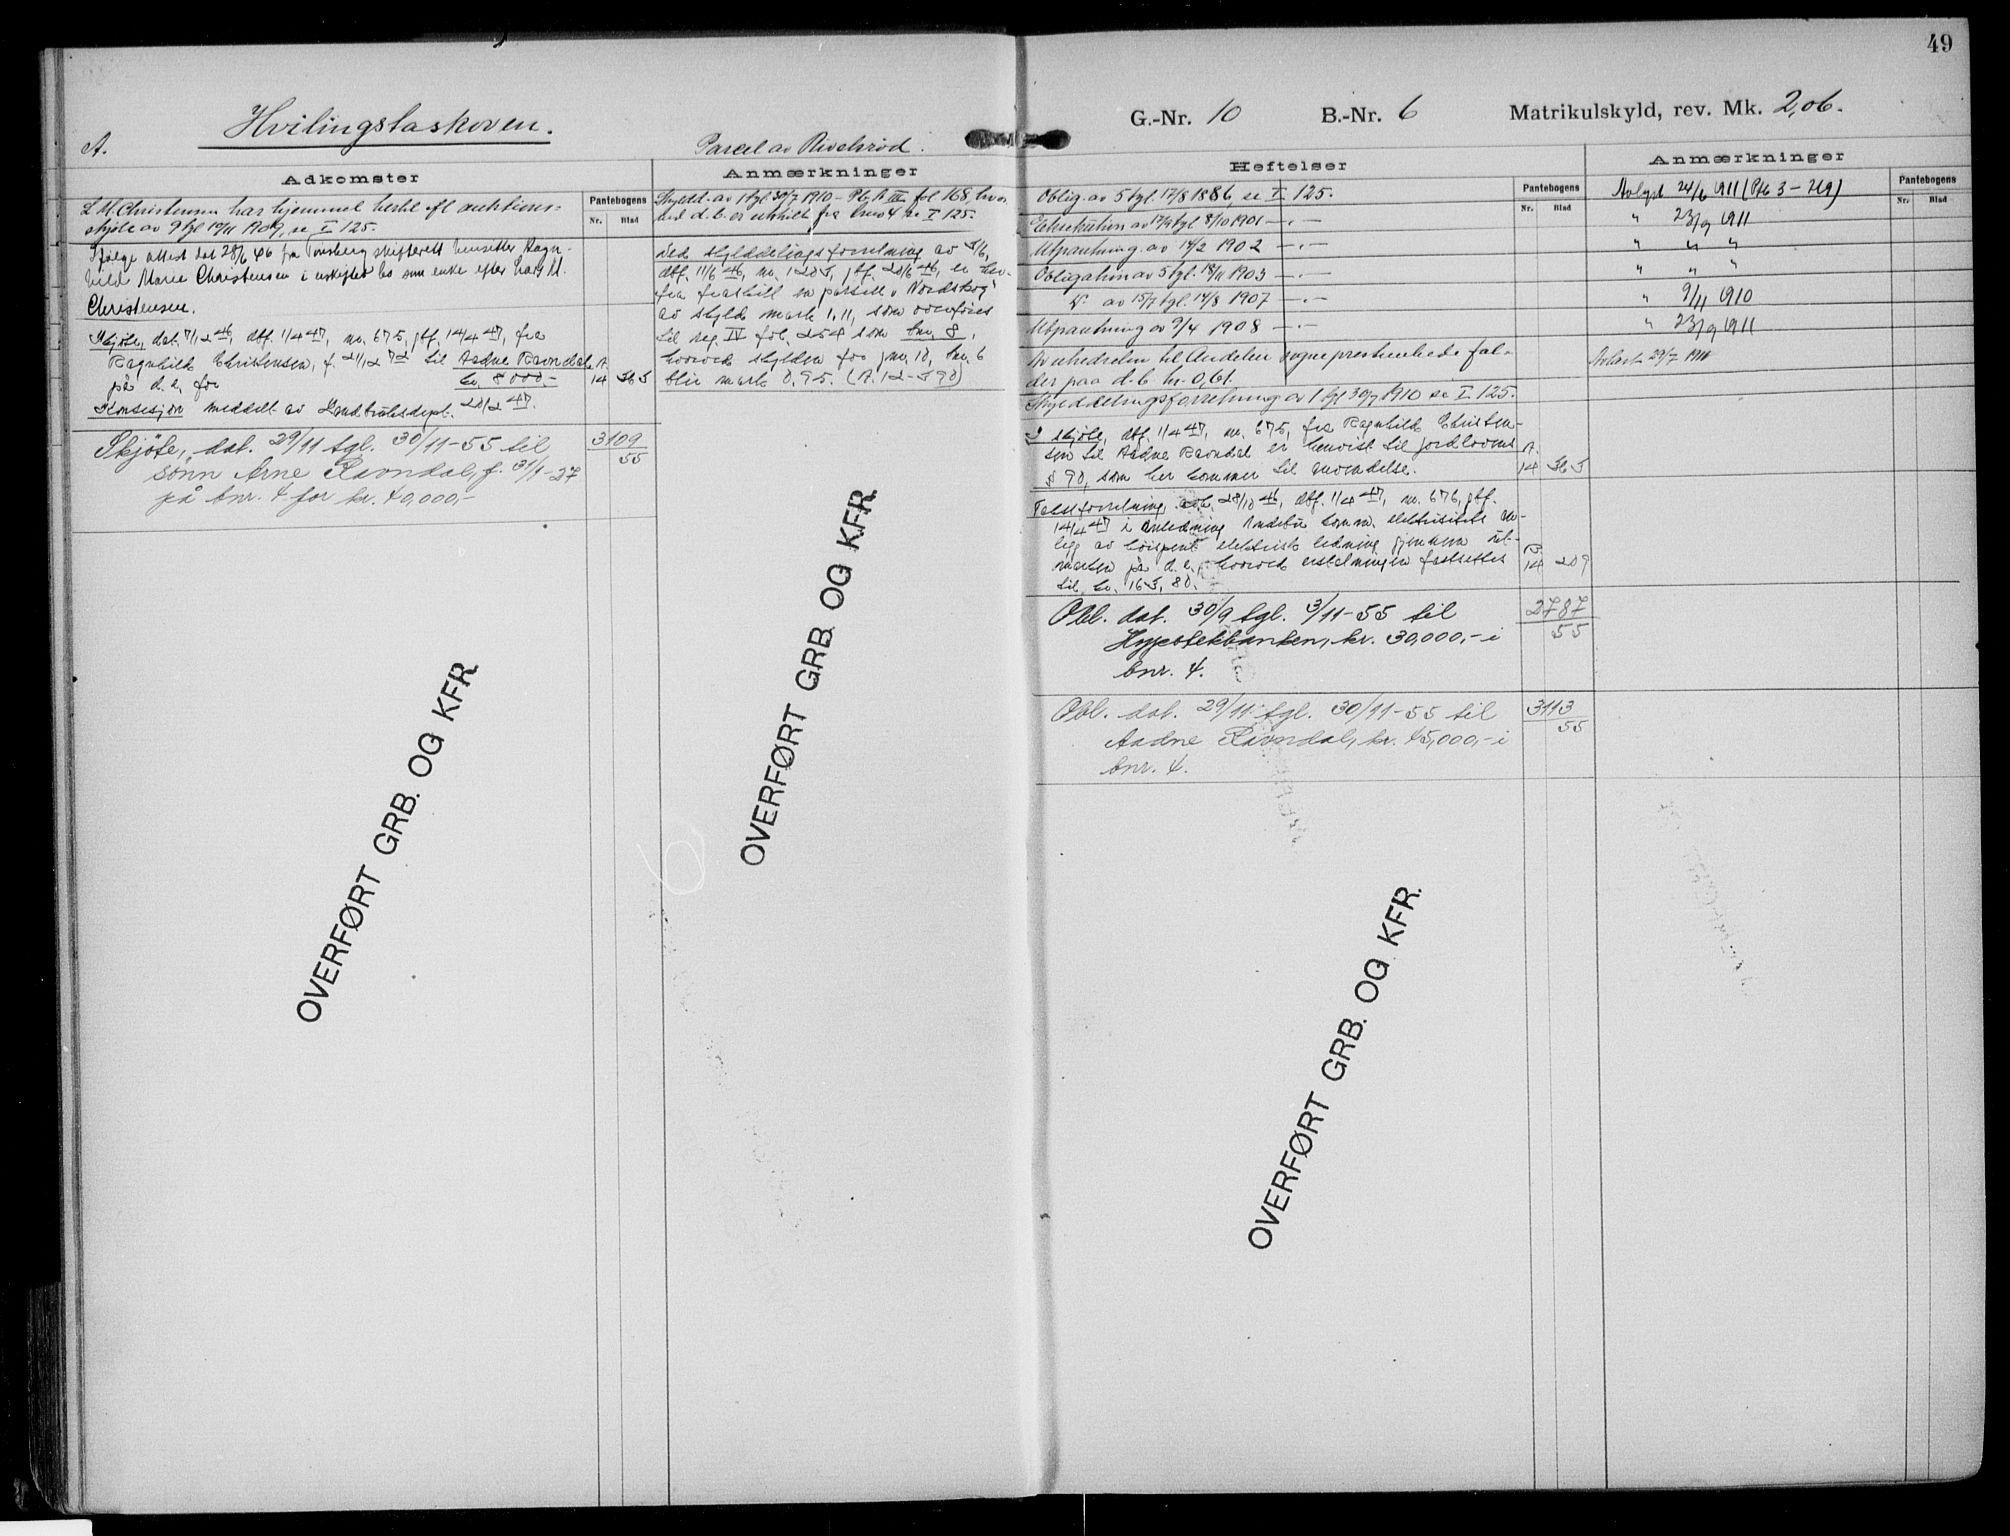 49
Hvilingstaskoven.
A.
Parcel av
G.-Nr. 10 B.-Nr. 6 Matrikulskyld, rev. Mk. 2,06.
Adkomster
Pantebogens
Nr. Blad
L. M. Christensen har hjemmel hertil efl auktions-
skjøte av 9 tgl 10/11 1909, se I 125.
Ifølge attest dat 28/6 46 fra Tønsberg skifterett hensitter Ragn-
hild Marie Christensen i uskiftet bo som enke efter Lars M.
Christensen.
Skjøte, dat. 7/12 46, dbf. 1/4 47, nr. 675, gbf. 14/4 47, fra
Ragnhild Christensen, f. 21/12 72 til Aadne Ravndal A.
på d. e. for kr. 8000.- 14 365
Konsesjon meddelt av Landbruksdept. 20/2 47.
Skjøte, dat. 29/11 tgl. 30/11-55 til 3109
sønn Arne Ravndal, f. 31/1-27 55
på bnr. 4 for kr. 40,000,-
OVERFØRT GRB. OG KFR.
Anmærkninger
Skyldd. av 1 tgl 30/7 1910 - Pb. A III fol 168, hvor-
ved d. b. er utskilt fra bno 4 se I 125.
Ved skylddelingsforretning av 5/6,
dbf. 11/6 46, nr. 1205, gbf. 20/6 46, er her-
fra fraskilt en parsell "Nordskog"
av skyld mark 1,11, som overføres
til reg. IV fol. 254 som bnr. 8,
hvorved skylden for gnr. 10, bnr. 6
blir mark 0,95. (A. 12-590)
OVERFØRT GRB. OG KFR.
Heftelser
Pantebogens
Nr. Blad
Oblig. av 5 tgl. 17/8 1886 se I 125.
Eksekution av 17/9 tgl 8/10 1901 - " -
Utpantning av 14/2 1902 - " -
Obligation av 5 tgl. 18/11 1903 - " -
D° av 15/7 tgl. 14/8 1907 - " -
Utpantning av 9/4 1908 - " -
Av enkedrslen til Andebu sogneprestenkede fal-
der paa d. b. kr. 0,61.
Skylddelingsforretning av 1 tgl 30/7 1910 se I. 125.
I skjøte, dbf. 1/4 47, nr. 675, fra Ragnhild Christen-
sen til Aadne Ravndal er henvist til jordlovens A.
§ 90, som her kommer til anvendelse. 14 365
Takstforretning avh. 28/10 46, dbf. 1/4 47, nr. 676, gbf.
14/4 47 i anledning Andebu komm. elektrisitets an-
legg av høispent elektrisk ledning gjennem ut- B.
marken på d. e., hvorved erstatningen fastsettes 14 209
til kr. 165,80.
Obl. dat. 30/9 tgl. 3/11-55 til 2787
Hypotekbanken, kr. 30,000,- i 55
bnr. 4.
Obl. dat. 29/11 tgl. 30/11-55 til 3113
Aadne Ravndal, kr. 15,000,- i 55
bnr. 4.
OVERFØRT GRB. OG KFR.
Anmærkninger
Pantebogens
Nr. Blad
Avlyst 24/6 1911 (Pb 3-219)
" 23/9 1911
" " "
" " "
" 9/11 1910
" 23/9 1911
Avlæst 29/7 1911